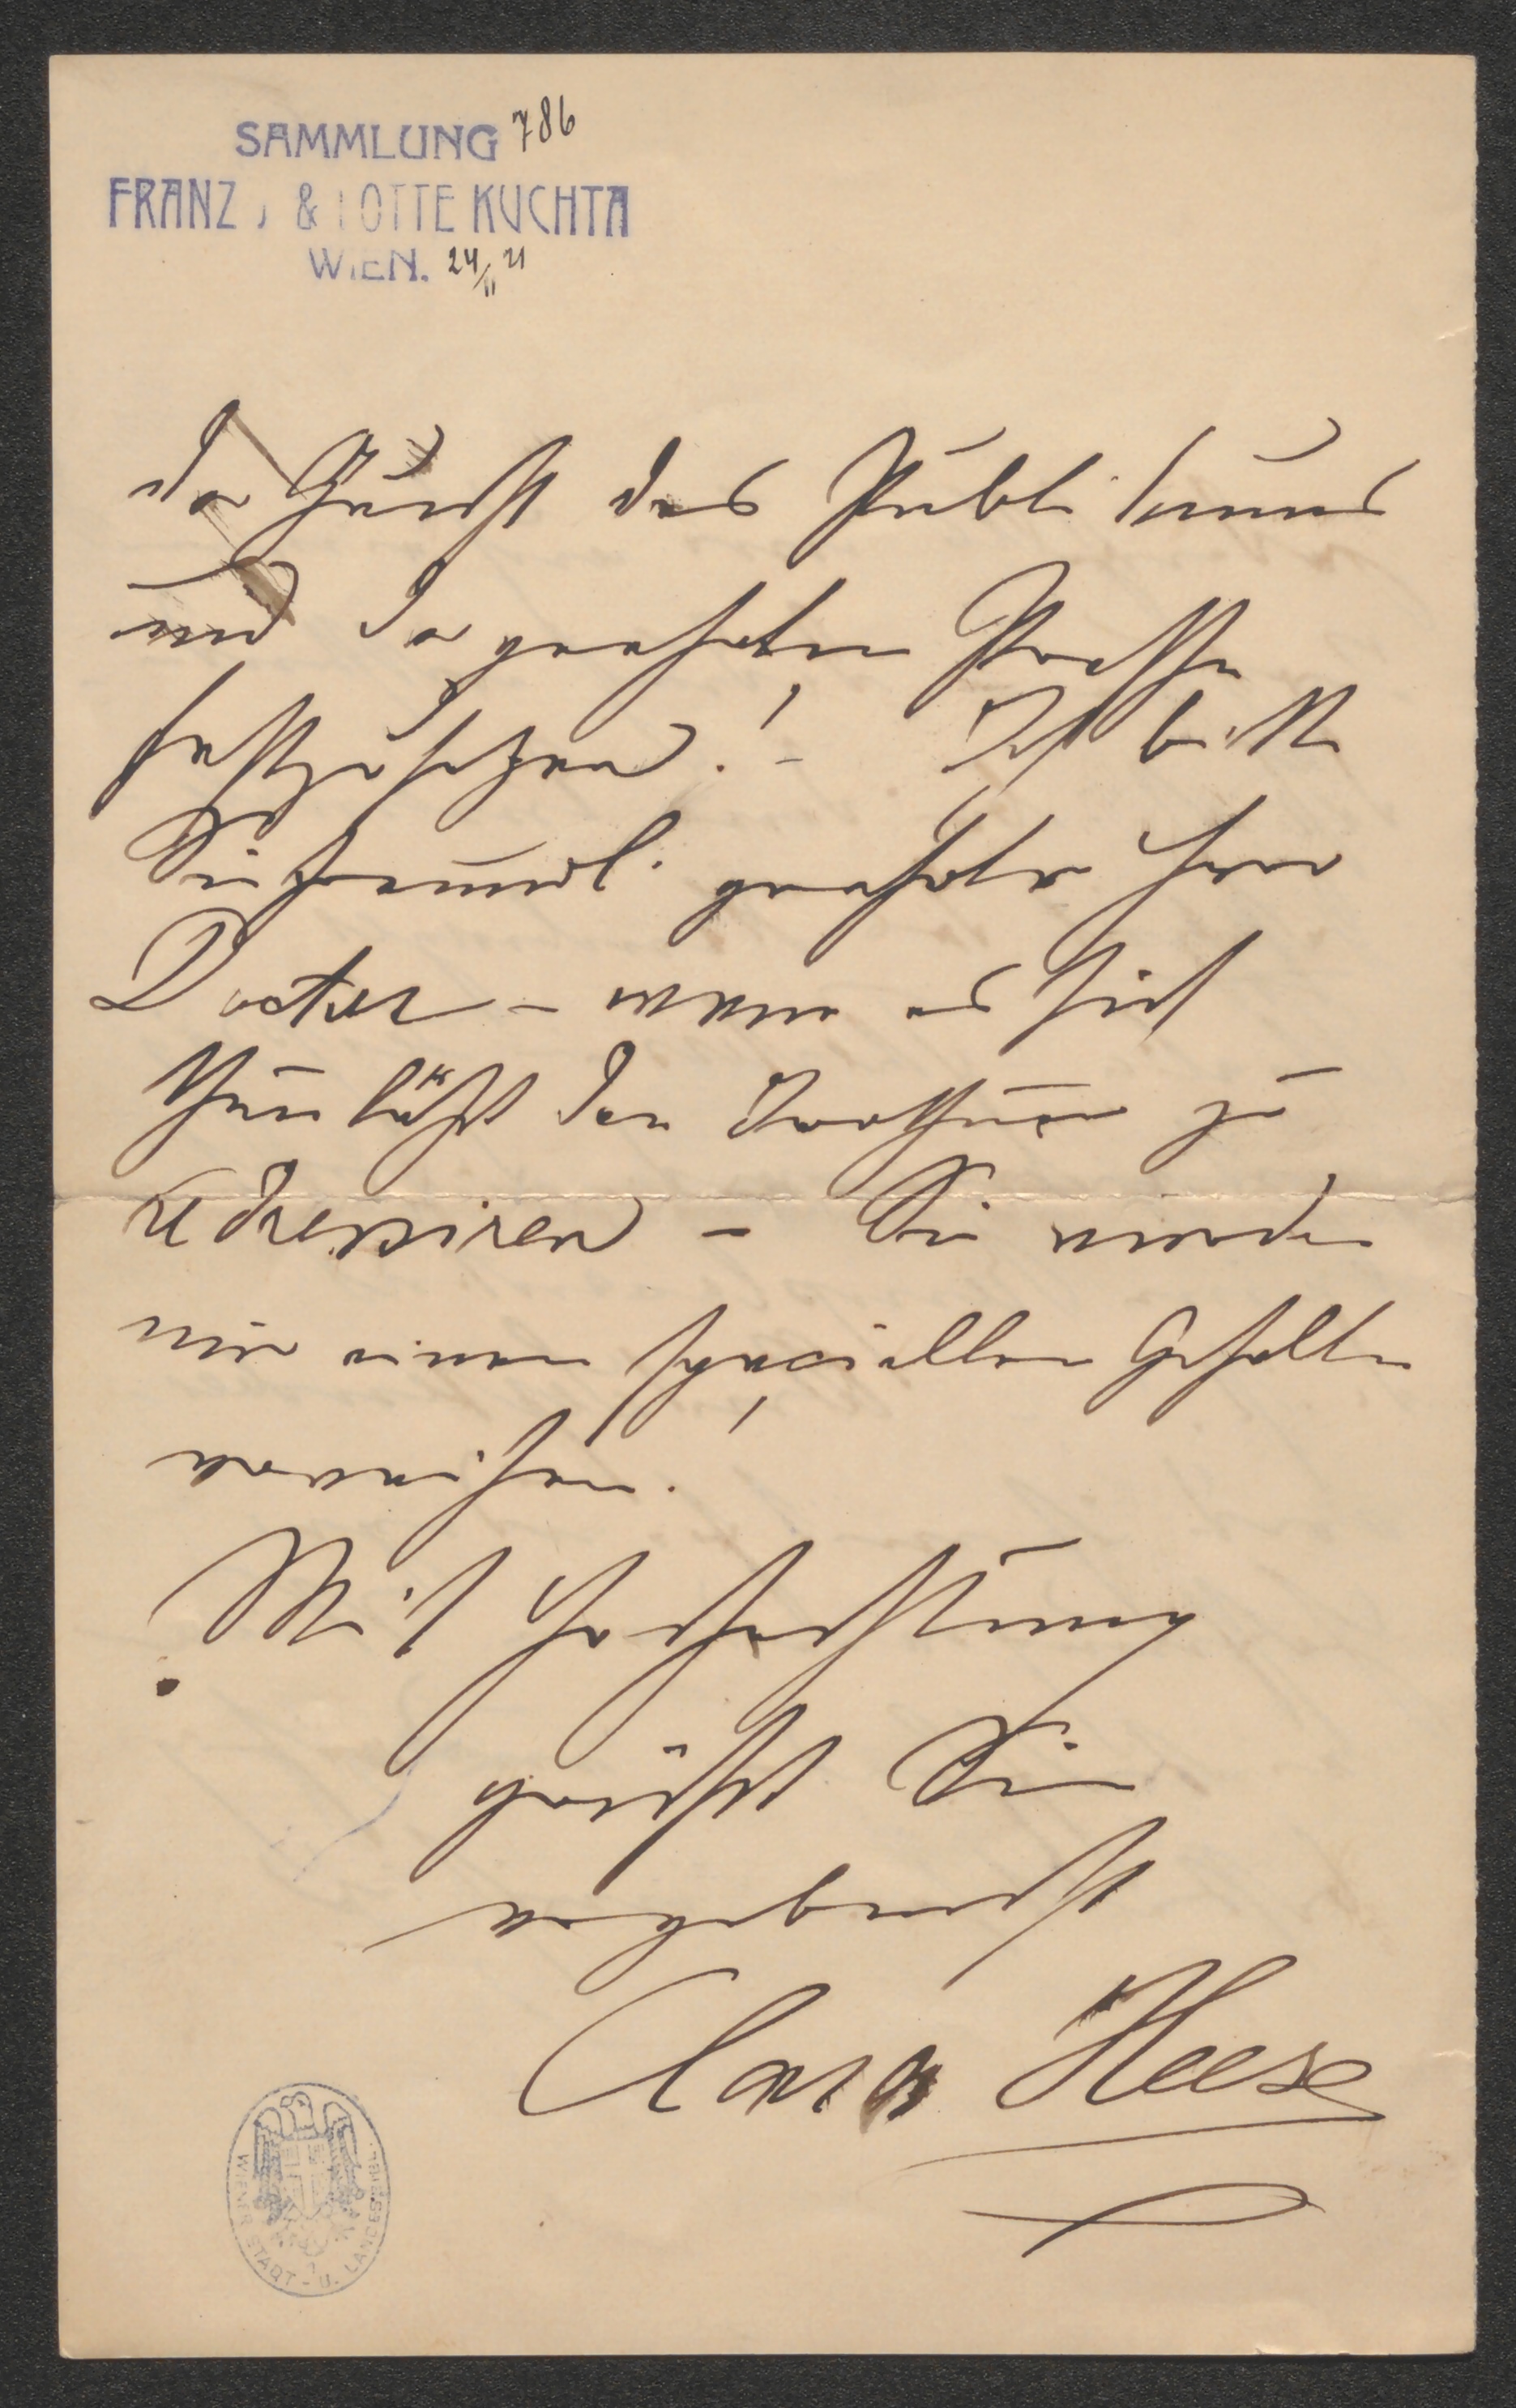 SAMMLUNG 786
FRANZ J & LOTTE KUCHTA
WIEN. 24/II 21
der Gunst des Publikums
und der geehrten Presse
festzusetzen! – Ich bitte
Sie freundl. geehrter Herr
Doctor – wenn es sich
thun läßt den Irrthum zu
redressiren – Sie würden
mir einen speciellen Gefallen
erweisen!
Mit Hochachtung
grüßt Sie
ergebenst
Clara Heese
WIENER STADT- U. LANDESBIBL.